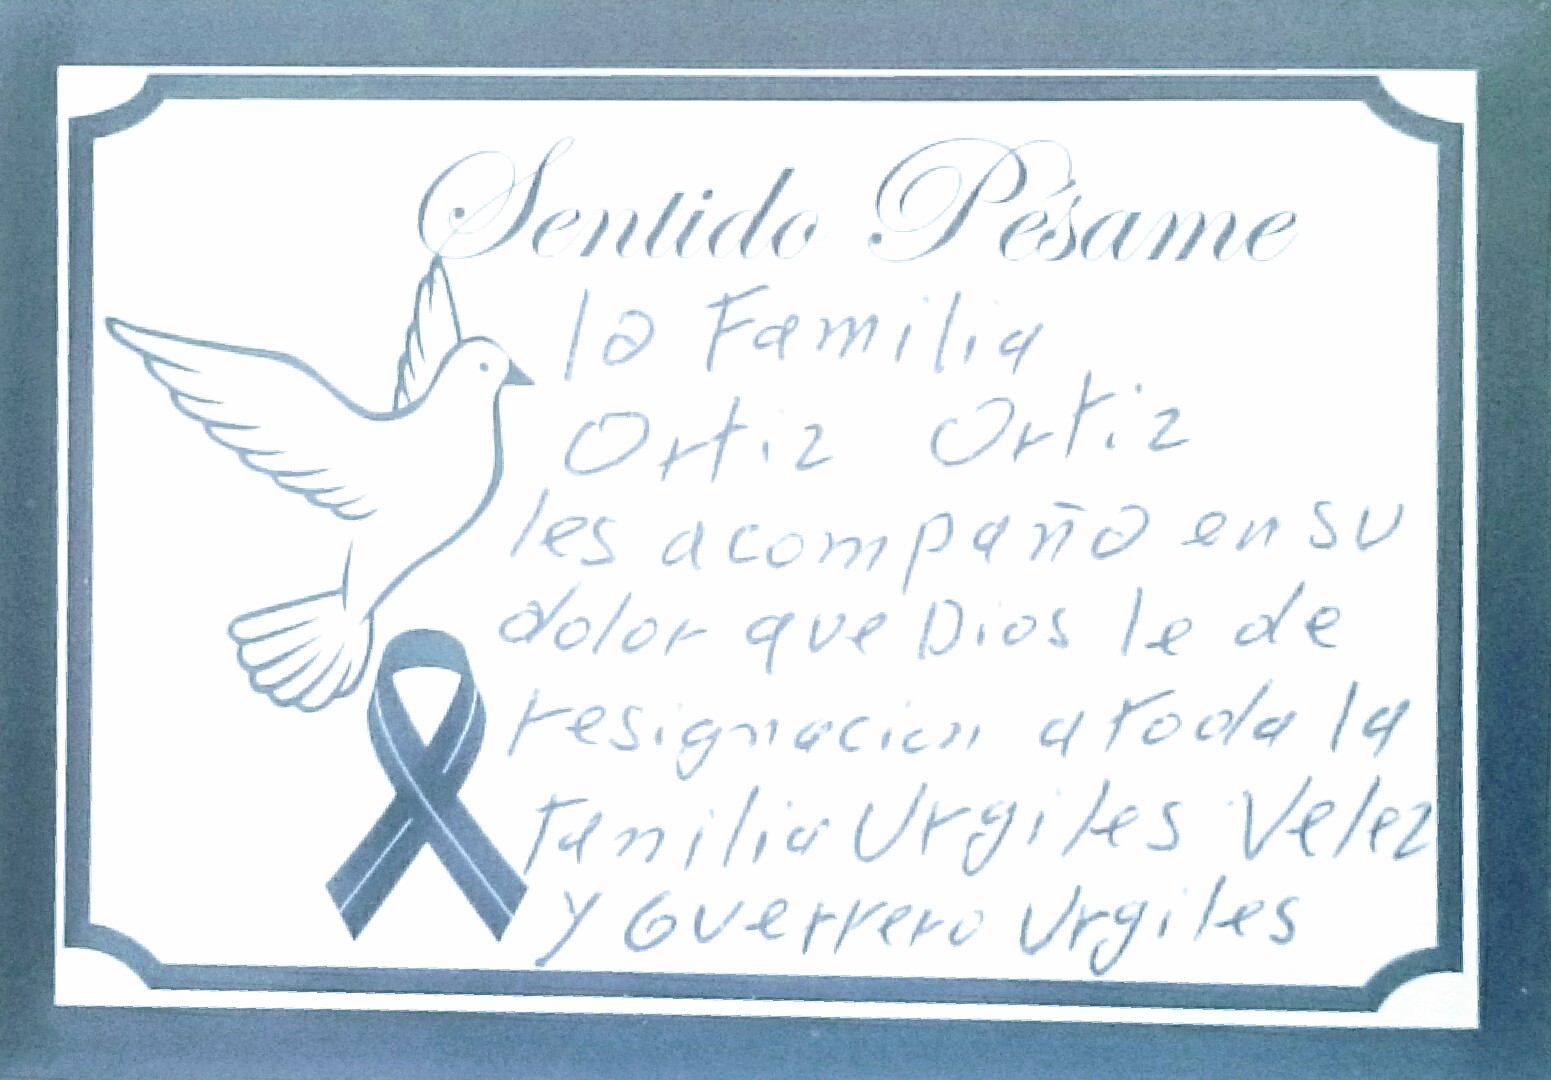 Sentido Pésame
la Familia
Ortiz Ortiz
les acompaño en su
dolor que Dios le de
resignacion a toda la
familia Urgiles Velez
y Guerrero Urgiles